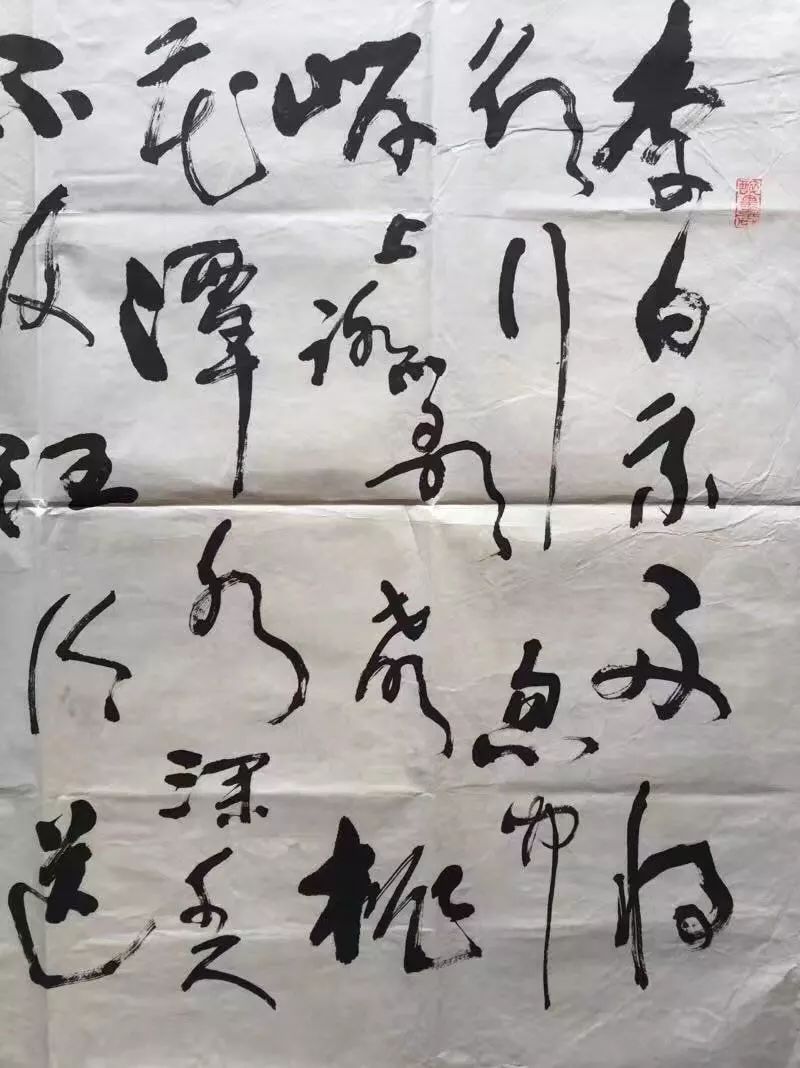 李白乘舟将
欲行忽闻
岸上踏歌声桃
花潭水深千尺
不及汪伦送